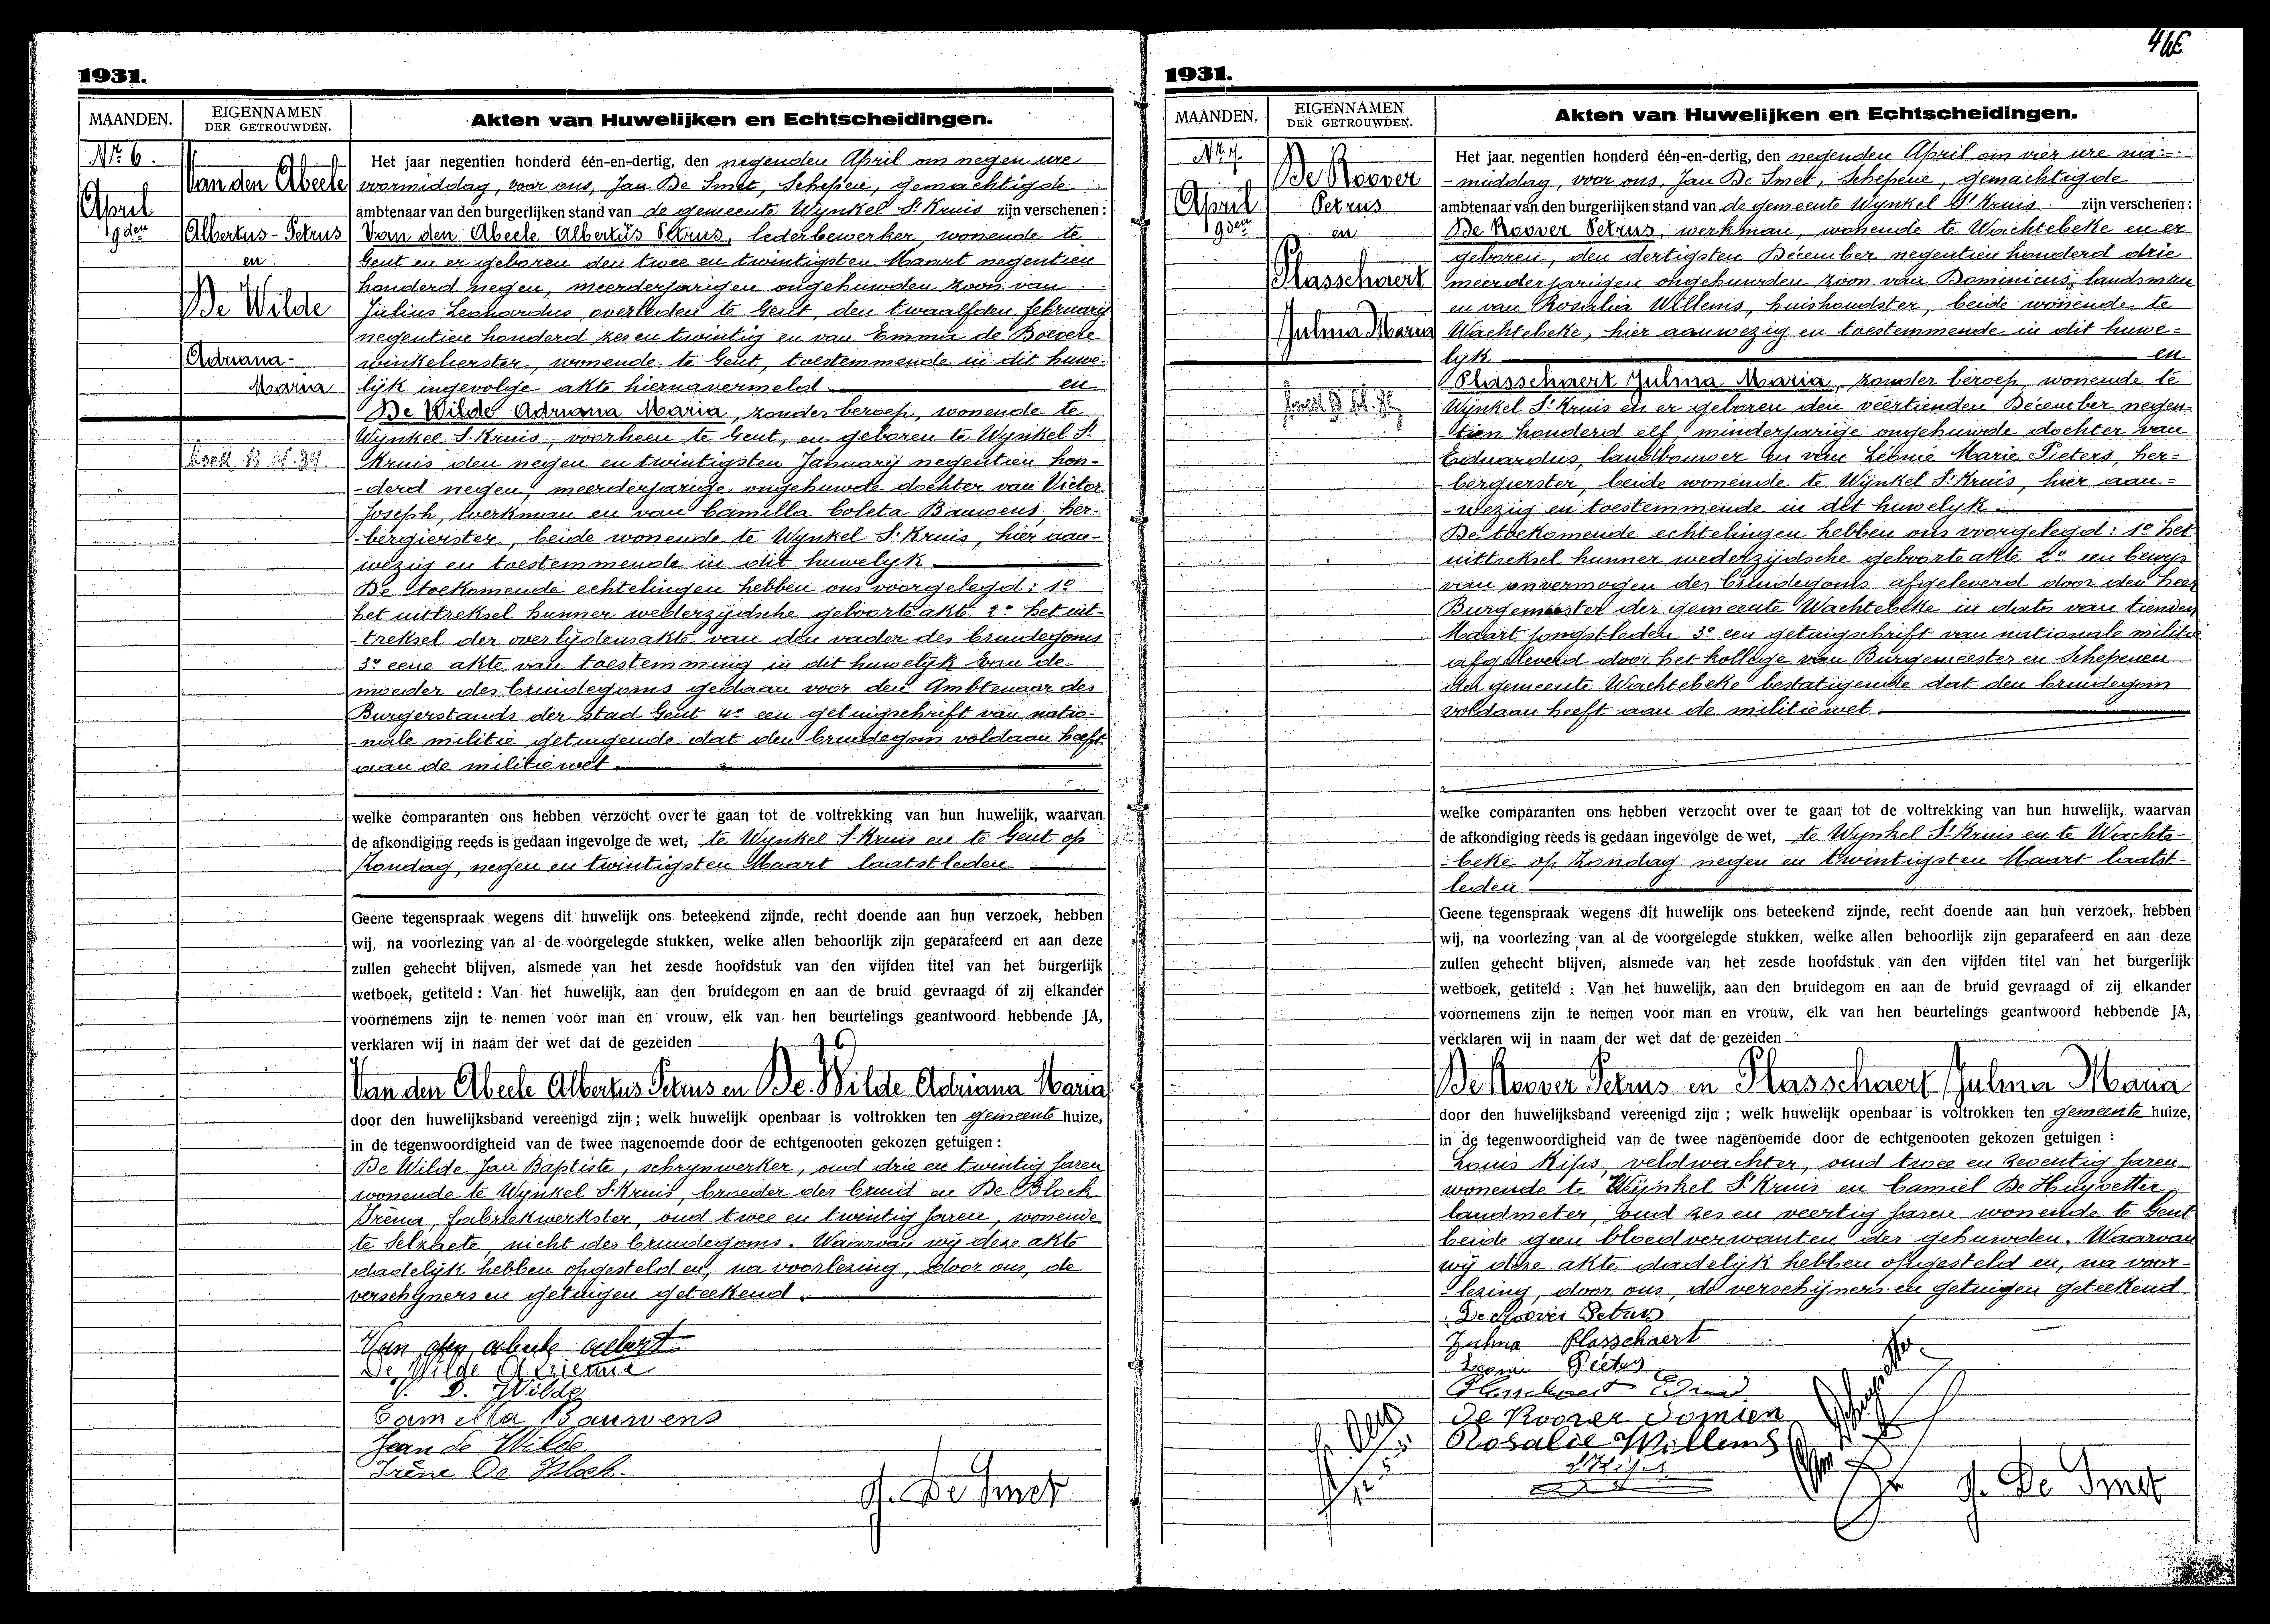 46
1931.
MAANDEN.
EIGENNAMEN
DER GETROUWDEN.
Akten van Huwelijken en Echtscheidingen.
Nr 6.
April
9den
Van den Abeele
Albertus-Petrus
en
De Wilde
Adriana-
Maria
Het jaar negentien honderd één-en-dertig, den negenden April om negen ure
voormiddag, voor ons, Jan De Smet, Schepen, gemachtigde
ambtenaar van den burgerlijken stand van de gemeente Wynkel St Kruis zijn verschenen:
Van den Abeele Albertus Petrus, lederbewerker, wonende te
Gent en er geboren den twee en twintigsten Maart negentien
honderd negen, meerderjarigen ongehuwden zoon van
Julius Leonardus overleden te Gent, den twaalfden februarij
negentien honderd zes en twintig en van Emma de Boevere
winkelierster, wonende te Gent, toestemmende in dit huwe-
lijk ingevolge akte hiernavermeld en
De Wilde Adriana Maria, zonder beroep, wonende te
Wynkel St Kruis, voorheen te Gent, en geboren te Wynkel St
Kruis den negen en twintigsten Januarij negentien hon-
-derd negen, meerderjarige ongehuwde dochter van Victor
Joseph, werkman en van Camilla Coleta Bauwens, her-
-bergierster, beide wonende te Wynkel St Kruis, hier aan-
wezig en toestemmende in dit huwelyk.
De toekomende echtelingen hebben ons voorgelegd: 1o
het uittreksel hunner wederzijdsche geboorte akte 2o het uit-
-treksel der overlijdensakte van den vader des bruidegoms
3o eene akte van toestemming in dit huwelijk van de
moeder des bruidegoms gedaan voor den Ambtenaar des
Burgerstands der stad Gent 4o een getuigschrift van natio-
-nale militie getuigende dat den bruidegom voldaan heeft
aan de militiewet.
welke comparanten ons hebben verzocht over te gaan tot de voltrekking van hun huwelijk, waarvan
de afkondiging reeds is gedaan ingevolge de wet, te Wynkel St Kruis en te Gent op
Zondag, negen en twintigsten Maart laatstleden
Geene tegenspraak wegens dit huwelijk ons beteekend zijnde, recht doende aan hun verzoek, hebben
wij, na voorlezing van al de voorgelegde stukken, welke allen behoorlijk zijn geparafeerd en aan deze
zullen gehecht blijven, alsmede van het zesde hoofdstuk van den vijfden titel van het burgerlijk
wetboek, getiteld : Van het huwelijk, aan den bruidegom en aan de bruid gevraagd of zij elkander
voornemens zijn te nemen voor man en vrouw, elk van hen beurtelings geantwoord hebbende JA,
verklaren wij in naam der wet dat de gezeiden
Van den Abeele Albertus Petrus en De Wilde Adriana Maria
door den huwelijksband vereenigd zijn ; welk huwelijk openbaar is voltrokken ten gemeente huize,
in de tegenwoordigheid van de twee nagenoemde door de echtgenooten gekozen getuigen :
De Wilde Jan Baptiste, schrynwerker, oud drie en twintig jaren
wonende te Wynkel St Kruis, broeder der bruid en De Block
Iréna, fabriekwerkster, oud twee en twintig jaren, wonende
te Selzaete, nicht des bruidegoms. Waarvan wij deze akte
dadelijk hebben opgesteld en, na voorlezing, door ons, de
verschyners en getuigen geteekend.
Van den abeele albert
De Wilde Adrienne
V. D. Wilde
Camilla Bauwens
Jean de Wilde
Irène De Block.
J. De Smet
1931.
MAANDEN.
EIGENNAMEN
DER GETROUWDEN.
Akten van Huwelijken en Echtscheidingen.
Nr 7.
April
9den
De Roover
Petrus
en
Plasschaert
Julma Maria
Het jaar negentien honderd één-en-dertig, den negenden April om vier ure na-
-middag, voor ons, Jan De Smet, Schepene, gemachtigde
ambtenaar van den burgerlijken stand van de gemeente Wynkel St Kruis zijn verschenen :
De Roover Petrus, werkman, wonende te Wachtebeke en er
geboren, den dertigsten December negentien honderd drie
meerderjarigen ongehuwden zoon van Dominicus, landsman
en van Rosalia Willems, huishoudster, beide wonende te
Wachtebeke, hier aanwezig en toestemmende in dit huwe-
lyk en
Plasschaert Julma Maria, zonder beroep, wonende te
Wijnkel St Kruis en er geboren den veertienden December negen-
-tien honderd elf, minderjarige ongehuwde dochter van
Eduardus, landbouwer en van Leonie Marie Pieters, her-
-bergierster, beide wonende te Wijnkel St Kruis, hier aan-
-wezig en toestemmende in dit huwelyk.
De toekomende echtelingen hebben ons voorgelegd: 1o het
uittreksel hunner wederzijdsche geboorte akte 2o een bewys
van onvermogen des bruidegoms afgeleverd door den heer
Burgemeester der gemeente Wachtebeke in dato van tienden
Maart jongstleden 3o een getuigschrift van nationale militie
afgeleverd door het kollege van Burgemeester en Schepenen
der gemeente Wachtebeke bestatigende dat den bruidegom
voldaan heeft aan de militiewet
welke comparanten ons hebben verzocht over te gaan tot de voltrekking van hun huwelijk, waarvan
de afkondiging reeds is gedaan ingevolge de wet, te Wijnkel St Kruis en te Wachte-
-beke op Zondag negen en twintigsten Maart laatst-
leden
Geene tegenspraak wegens dit huwelijk ons beteekend zijnde, recht doende aan hun verzoek, hebben
wij, na voorlezing van al de voorgelegde stukken, welke allen behoorlijk zijn geparafeerd en aan deze
zullen gehecht blijven, alsmede van het zesde hoofdstuk van den vijfden titel van het burgerlijk
wetboek, getiteld : Van het huwelijk, aan den bruidegom en aan de bruid gevraagd of zij elkander
voornemens zijn te nemen voor man en vrouw, elk van hen beurtelings geantwoord hebbende JA,
verklaren wij in naam der wet dat de gezeiden
De Roover Petrus en Plasschaert Julma Maria
door den huwelijksband vereenigd zijn ; welk huwelijk openbaar is voltrokken ten gemeente huize,
in de tegenwoordigheid van de twee nagenoemde door de echtgenooten gekozen getuigen :
Louis Kips, veldwachter, oud twee en zeventig jaren
wonende te Wijnkel St Kruis en Camiel De Huyvetter
landmeter, oud zes en veertig jaren wonende te Gent
beide geen bloedverwanten der gehuwden. Waarvan
wij deze akte dadelijk hebben opgesteld en, na voor-
-lezing, door ons, de verschijners en getuigen geteekend
De Roover Petrus
Zulma Plasschaert
Leonie Pieters
Plasschaert Edward
De Roover Domien
Rosalie Willems
L Kips
J. De Smet